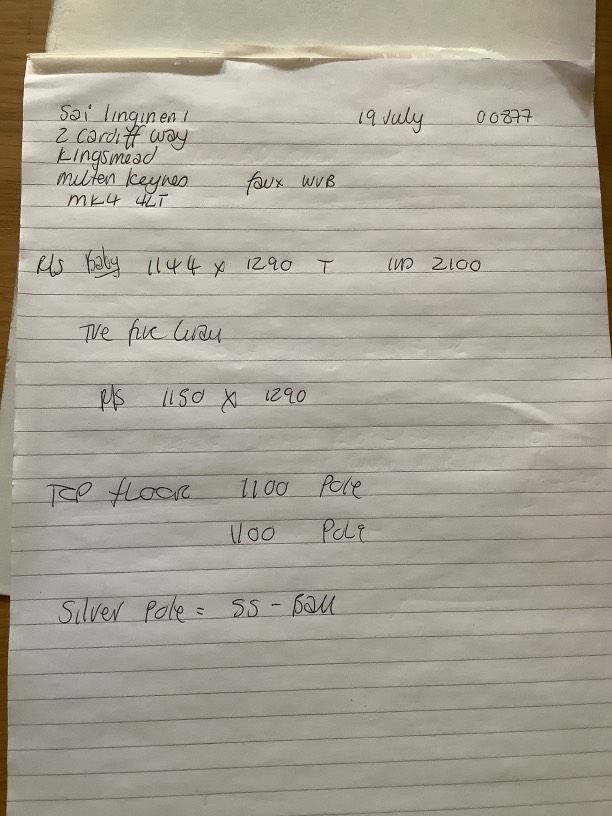 Sai lingineni 19 July 00877
2 cardiff way
Kingsmead
milten keynes faux WVB
MK4 4LT
R/S Baby 1144 x 1290 T 2100
R/S 1150 x 1290
TOP FLOOR 1100 Pole
1100 Pole
Silver Pole = SS - Ball